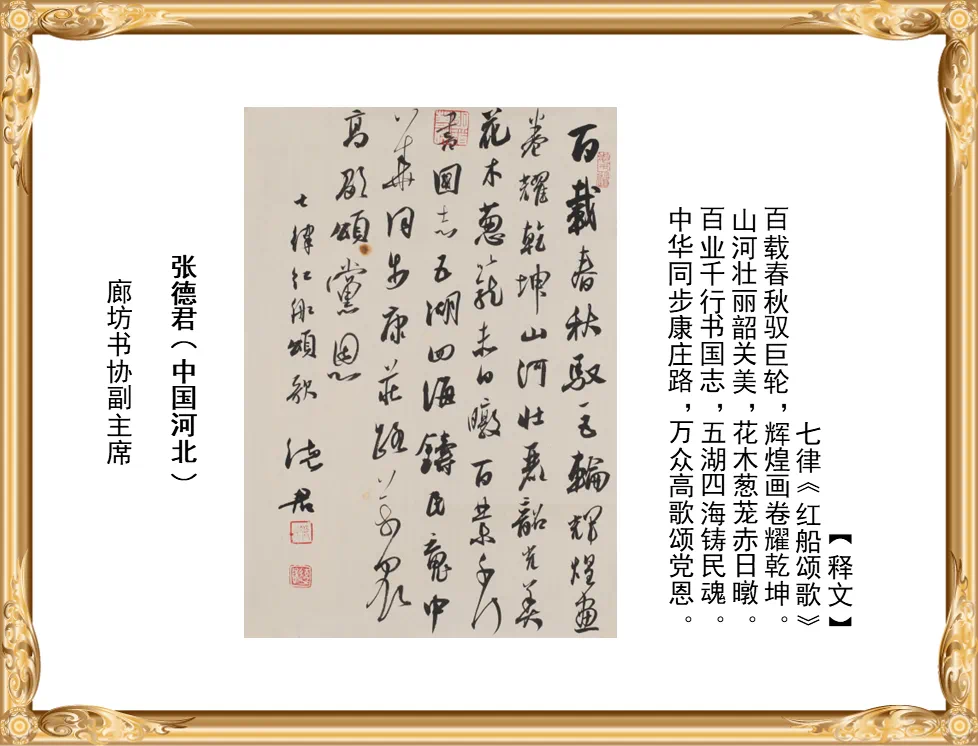 【释文】
七律《红船颂歌》
百载春秋驭巨轮，辉煌画卷耀乾坤。
山河壮丽韶关美，花木葱茏赤日暾。
百业千行书国志，五湖四海铸民魂。
中华同步康庄路，万众高歌颂党恩。
百載春秋馭巨輪輝煌畫
卷耀乾坤山河壯麗韶光美
花木蔥蘢赤日暾百業千行
書國志五湖四海鑄民魂中
華同步康莊路萬眾
高歌頌黨恩
七律紅船頌歌 德君
张德君（中国河北）
廊坊书协副主席